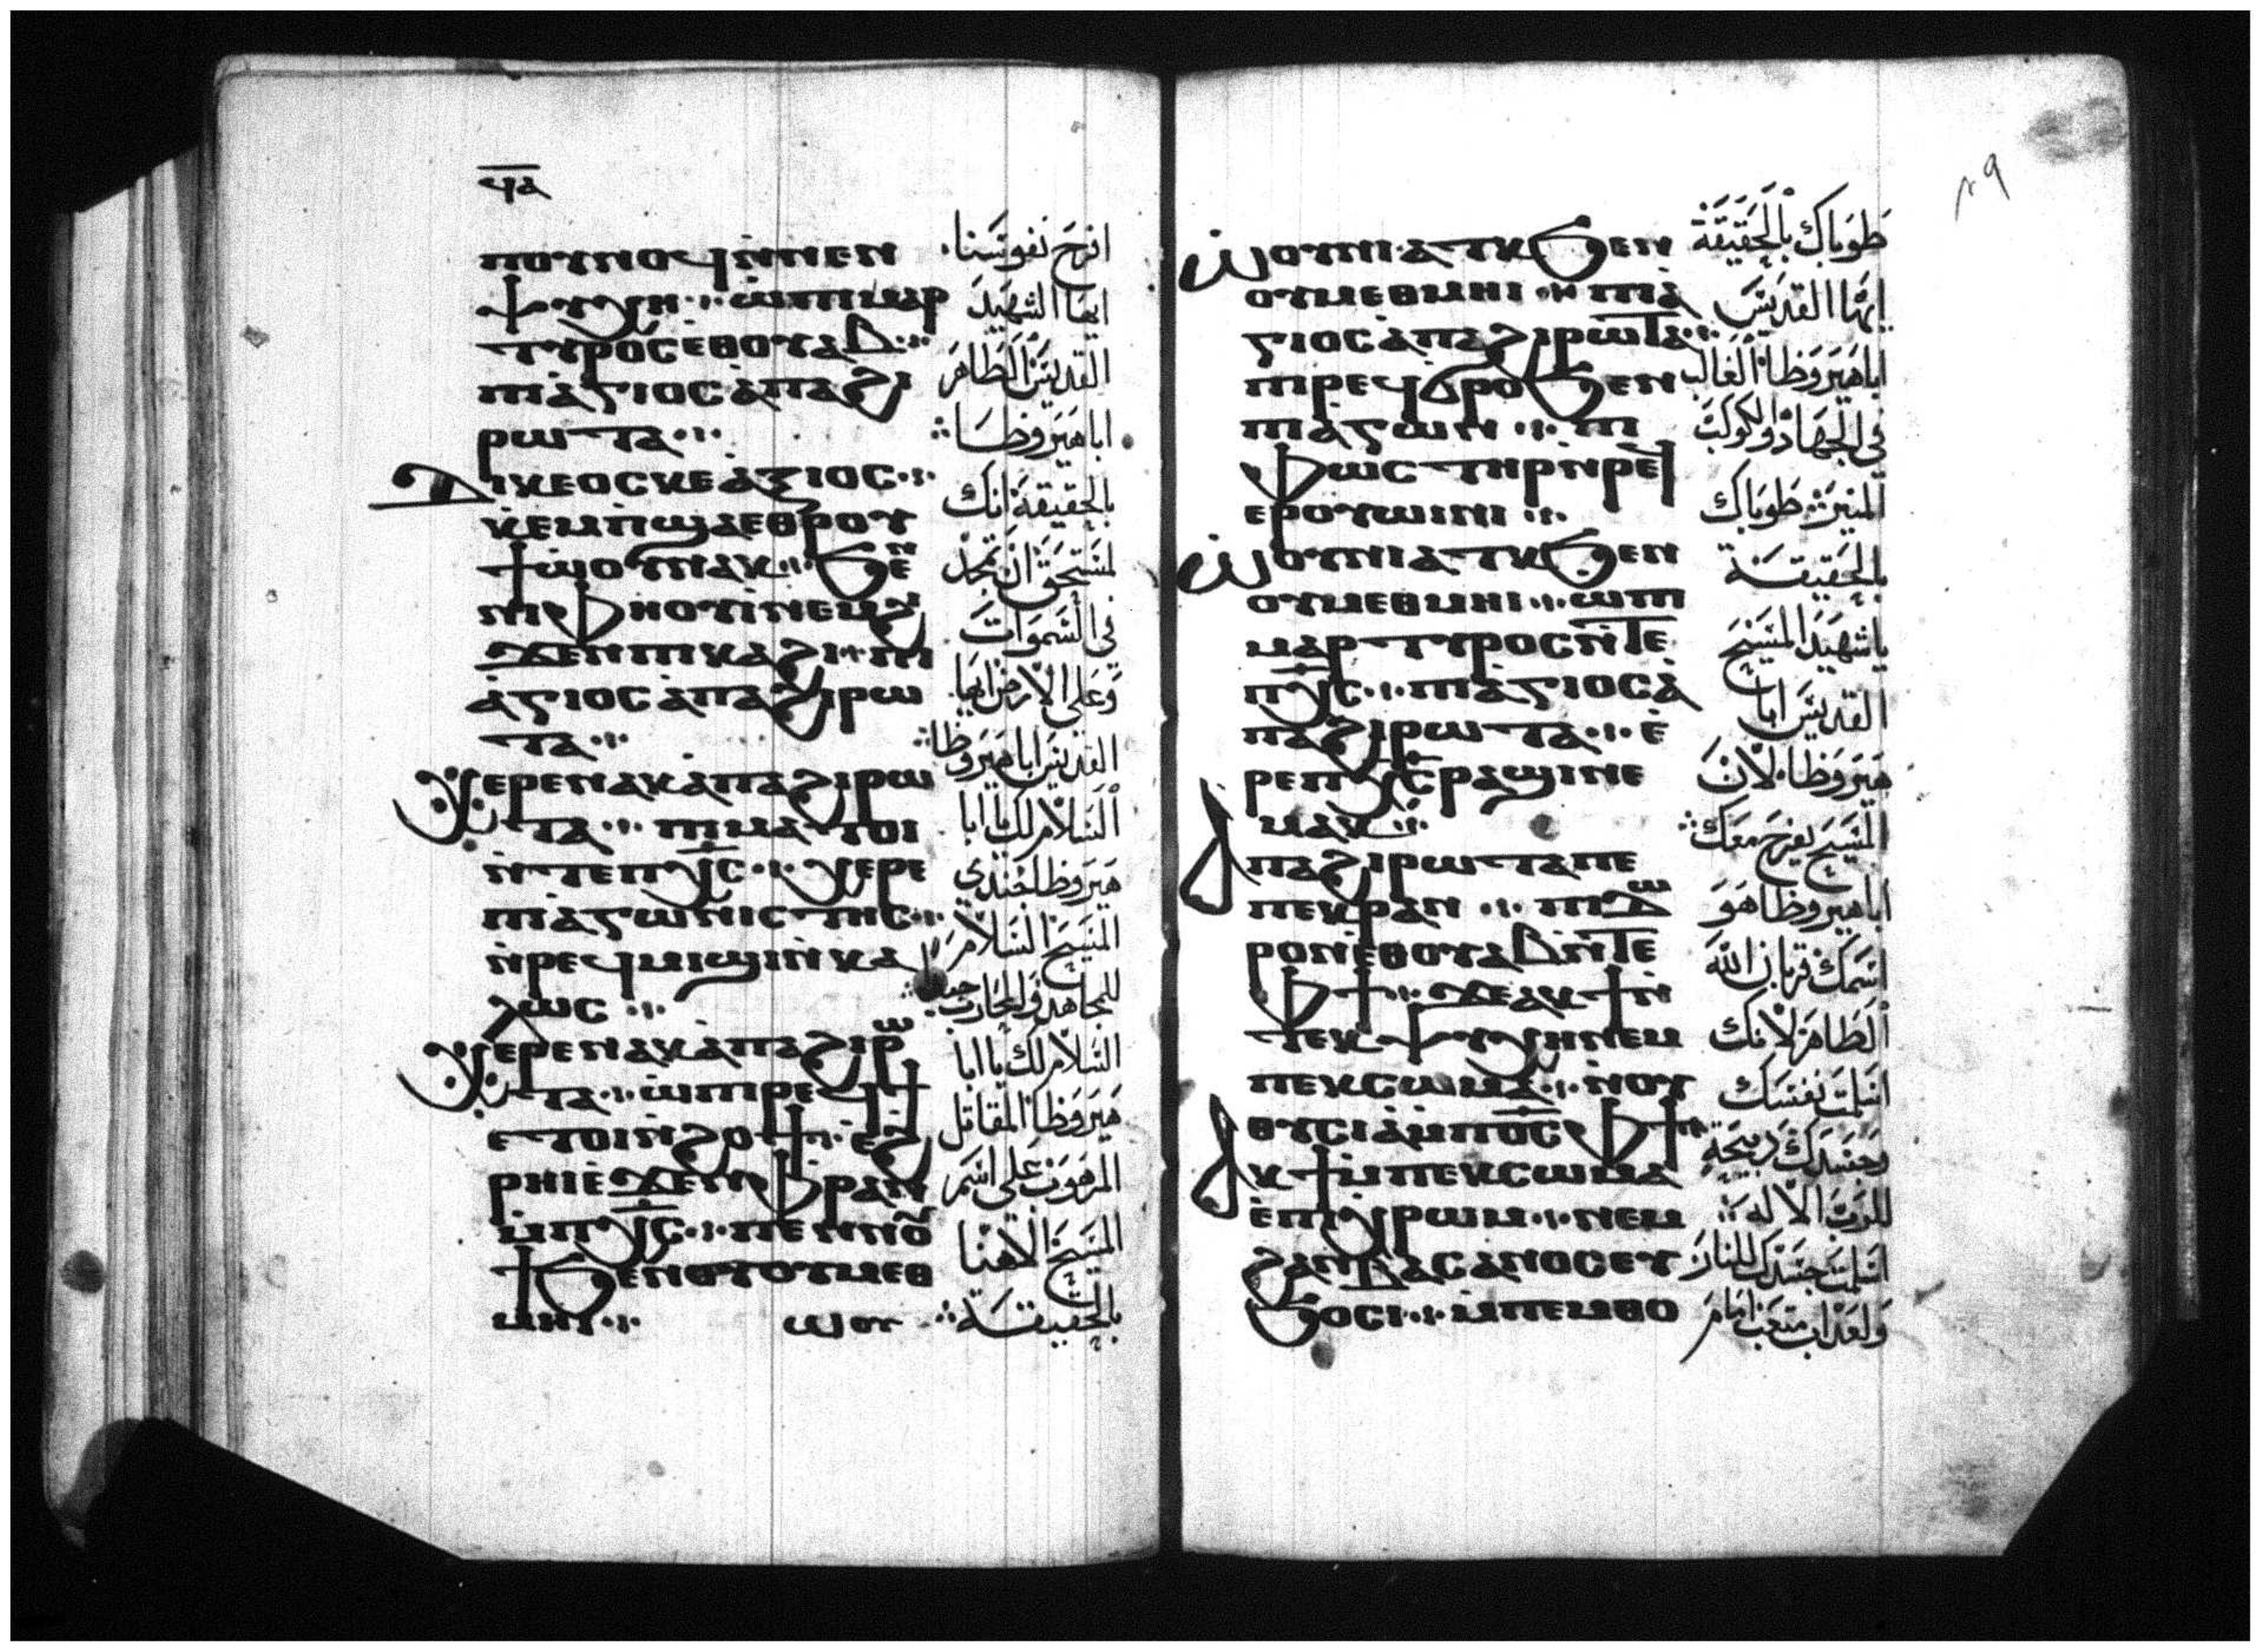 ϥⲁ
ⲡⲟⲩⲛⲟϥ ⲛ̀ⲛⲉⲛ
ⲯⲩⲭⲏ ⲱ̀ ⲡⲓⲙⲁⲣ
ⲧⲩⲣⲟⲥ ⲉⲑⲟⲩⲁⲃ
ⲡⲓⲁ̀ⲅⲓⲟⲥ ⲁ̀ⲡⲁ ϩⲓ
ⲣⲱⲧⲁ
ⲇⲓⲕⲉⲟⲥ ⲕⲉ ⲁ̀ⲝⲓⲟⲥ
ⲕ̀ⲉⲙⲡ̀ϣⲁ ⲉⲑⲣⲟⲩ
ϯⲱ̀ⲟⲩ ⲛⲁⲕ ϧⲉⲛ
ⲛⲓⲫⲏⲟⲩⲓ̀ ⲛⲉⲙ ϩⲓ
ϫⲉⲛ ⲡⲓⲕⲁϩⲓ ⲡⲓ
ⲁ̀ⲅⲓⲟⲥ ⲁ̀ⲡⲁ ϩⲓⲣⲱ
ⲧⲁ
ⲭⲉⲣⲉ ⲛⲁⲕ ⲁ̀ⲡⲁ ϩⲓⲣⲱ
ⲧⲁ ⲡⲓⲙⲁⲧⲟⲓ
ⲛ̀ⲧⲉ ⲡⲭ̅ⲥ̅ ⲭⲉⲣⲉ
ⲡⲓⲁ̀ⲅⲱⲛⲓⲥⲧⲏⲥ
ⲛ̀ⲣⲉϥⲙⲓϣⲓ ⲛ̀ⲕⲁ
ⲗⲱⲥ
ⲭⲉⲣⲉ ⲛⲁⲕ ⲁ̀ⲡⲁ ϩⲓⲣⲱ
ⲧⲁ ⲱ̀ ⲡⲓⲣⲉϥϯ
ⲉⲧⲟⲓ ⲛ̀ϩⲟϯ ⲉ̀ϩ
ⲣⲏⲓ ⲉ̀ϫⲉⲛ ⲫ̀ⲣⲁⲛ
ⲙ̀ⲡⲭ̅ⲥ̅ ⲡⲉⲛⲛⲟⲩ
ϯ ϧⲉⲛ ⲟⲩⲟⲩⲙⲉⲑ
ⲙⲏⲓ ⲱⲟⲩ
افرح نفوسنا
ايها الشهيد
القديس الطاهر
ابا هيروظا
بالحقيقة انك
لمستحق ان تمجد
في السموات
وعلى الارض ايها
القديس ابا هيروظا
السلام لك يا ابا
هيروظا جندي
المسيح السلام
للمجاهد والمحارب
السلام لك يا ابا
هيروظا المقاتل
المرهوب على اسم
المسيح الاهنا
بالحقيقة
ⲱⲟⲩⲛⲓⲁⲧⲕ ϧⲉⲛ
ⲟⲩⲙⲉⲑⲙⲏⲓ ⲡⲓⲁ̀
ⲅⲓⲟⲥ ⲁ̀ⲡⲁ ϩⲓⲣⲱⲧⲁ
ⲡⲓⲣⲉϥϭⲣⲟ ϧⲉⲛ
ⲡⲓⲁ̀ⲅⲱⲛ ⲡⲓ
ⲫⲱⲥⲧⲏⲣ ⲛ̀ⲣⲉϥ
ⲉⲣⲟⲩⲱⲓⲛⲓ
ⲱⲟⲩⲛⲓⲁⲧⲕ ϧⲉⲛ
ⲟⲩⲙⲉⲑⲙⲏⲓ ⲱ̀ ⲡⲓ
ⲙⲁⲣⲧⲩⲣⲟⲥ ⲛ̀ⲧⲉ
ⲡⲭ̅ⲥ̅ ⲡⲓⲁ̀ⲅⲓⲟⲥ ⲁ̀
ⲡⲁ ϩⲓⲣⲱⲧⲁ ⲉ̀
ⲣⲉ ⲡⲭ̅ⲥ̅ ⲣⲁϣⲓ ⲛⲉ
ⲙⲁⲕ
ⲁⲡⲁ ϩⲓⲣⲱⲧⲁ ⲡⲉ
ⲡⲉⲕⲣⲁⲛ ⲡⲓⲇⲱ
ⲣⲟⲛ ⲉ̀ⲑⲟⲩⲁⲃ ⲛ̀ⲧⲉ
ⲫϯ ϫⲉ ⲁⲕϯ ⲛ̀
ⲧⲉⲕⲯⲩⲭⲏ ⲛⲉⲙ
ⲡⲉⲕⲥⲱⲙⲁ ⲛⲟⲩ
ⲑⲩⲥⲓⲁ̀ ⲙ̀ⲡⲟ̅ⲥ̅ ⲫϯ
ⲁⲕϯ ⲙ̀ⲡⲉⲕⲥⲱⲙⲁ
ⲉ̀ⲡⲓⲭ̀ⲣⲱⲙ ⲛⲉⲙ
ϩⲁⲛⲃⲁⲥⲁⲛⲟⲥ ⲉⲩ
ϧⲟⲥⲓ ⲙ̀ⲡⲉⲙⲑⲟ
طوباك بالحقيقة
ايها القديس
ابا هيروظا الغالب
في الجهاد والكوكب
المنير طوباك
بالحقيقة
يا شهيد المسيح
القديس ابا
هيروظا لان
المسيح يفرح معك
ابا هيروظا هو
اسمك قربان الله
الطاهر لانك
اسلمت نفسك
وجسدك ذبيحة
للرب الاله
اسلمت جسدك للنار
ولعذاب متعب امام